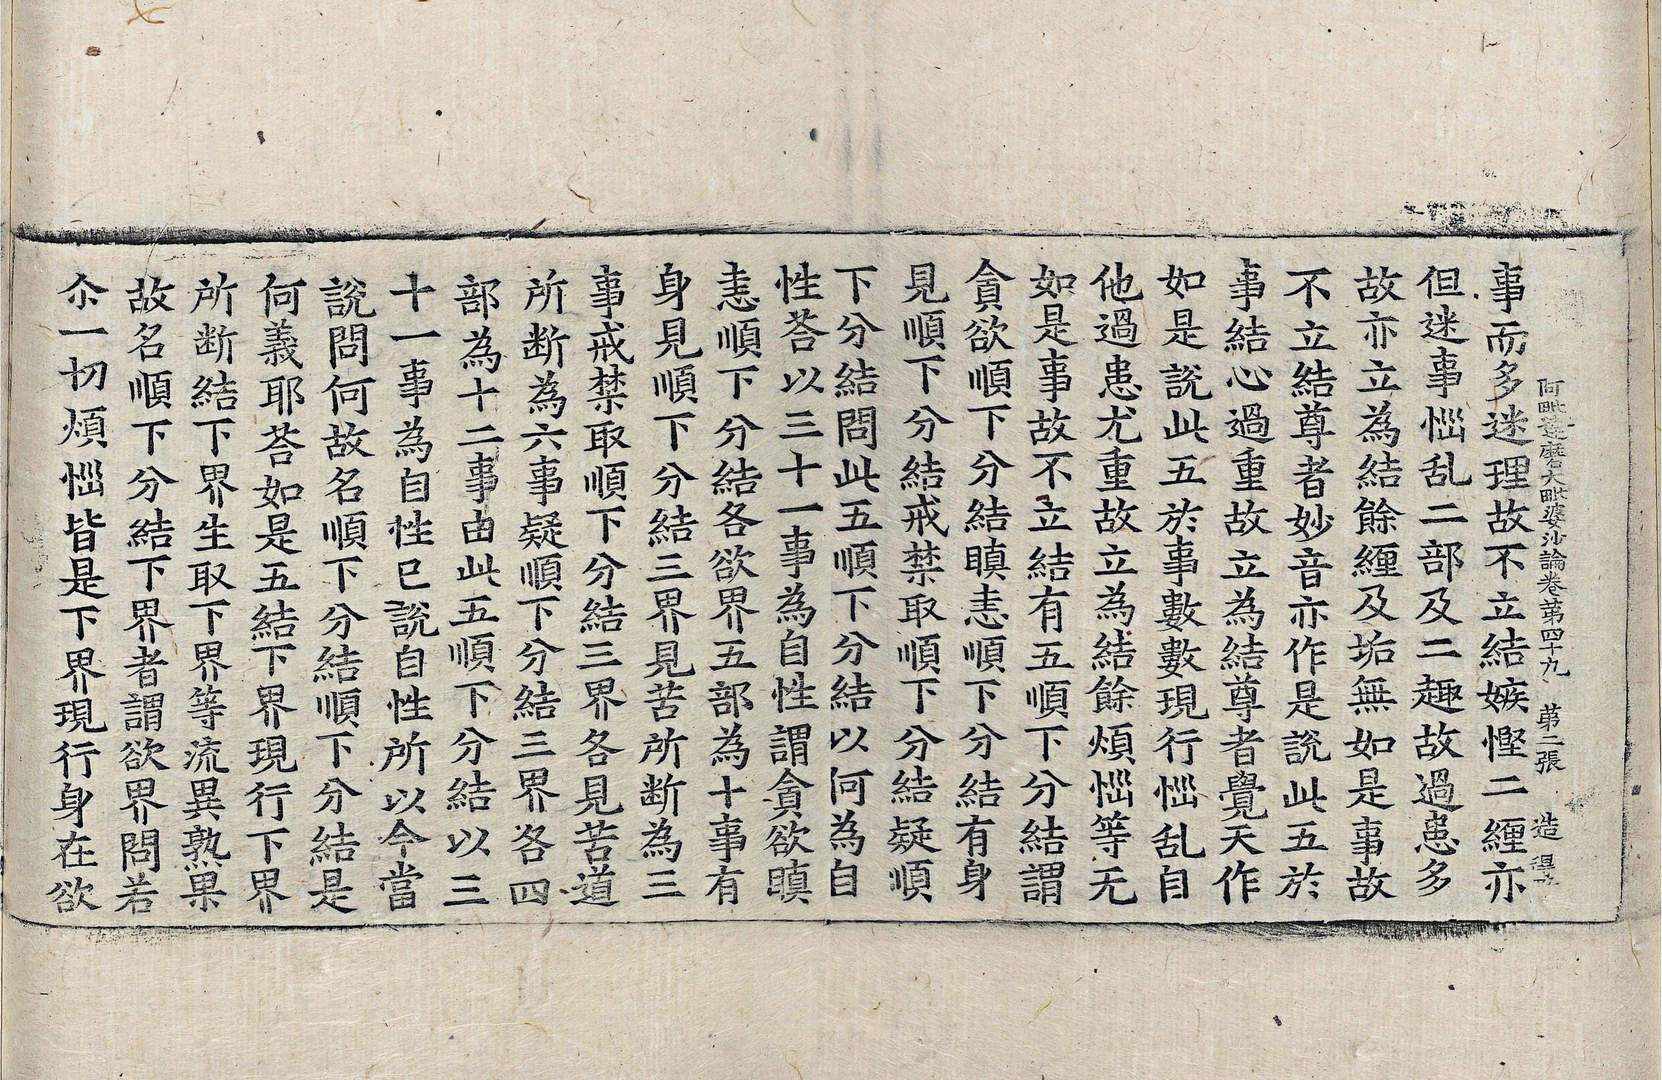 阿毗達磨大毗婆沙論卷第四十九 第二張 造
事而多迷理故不立結嫉慳二纏亦
但迷事惱乱二部及二趣故過患多
故亦立為結餘纏及垢無如是事故
不立結尊者妙音亦作是說此五於
事結心過重故立為結尊者覺天作
如是說此五於事數數現行惱乱自
他過患尤重故立為結餘煩惱等无
如是事故不立結有五順下分結謂
貪欲順下分結瞋恚順下分結有身
見順下分結戒禁取順下分結疑順
下分結問此五順下分結以何為自
性荅以三十一事為自性謂貪欲瞋
恚順下分結各欲界五部為十事有
身見順下分結三界見苦所斷為三
事戒禁取順下分結三界各見苦道
所断為六事疑順下分結三界各四
部為十二事由此五順下分結以三
十一事為自性已說自性所以今當
說問何故名順下分結順下分結是
何義耶荅如是五結下界現行下界
所断結下界生取下界等流異熟果
故名順下分結下界者謂欲界問若
尒一切煩惱皆是下界現行身在欲